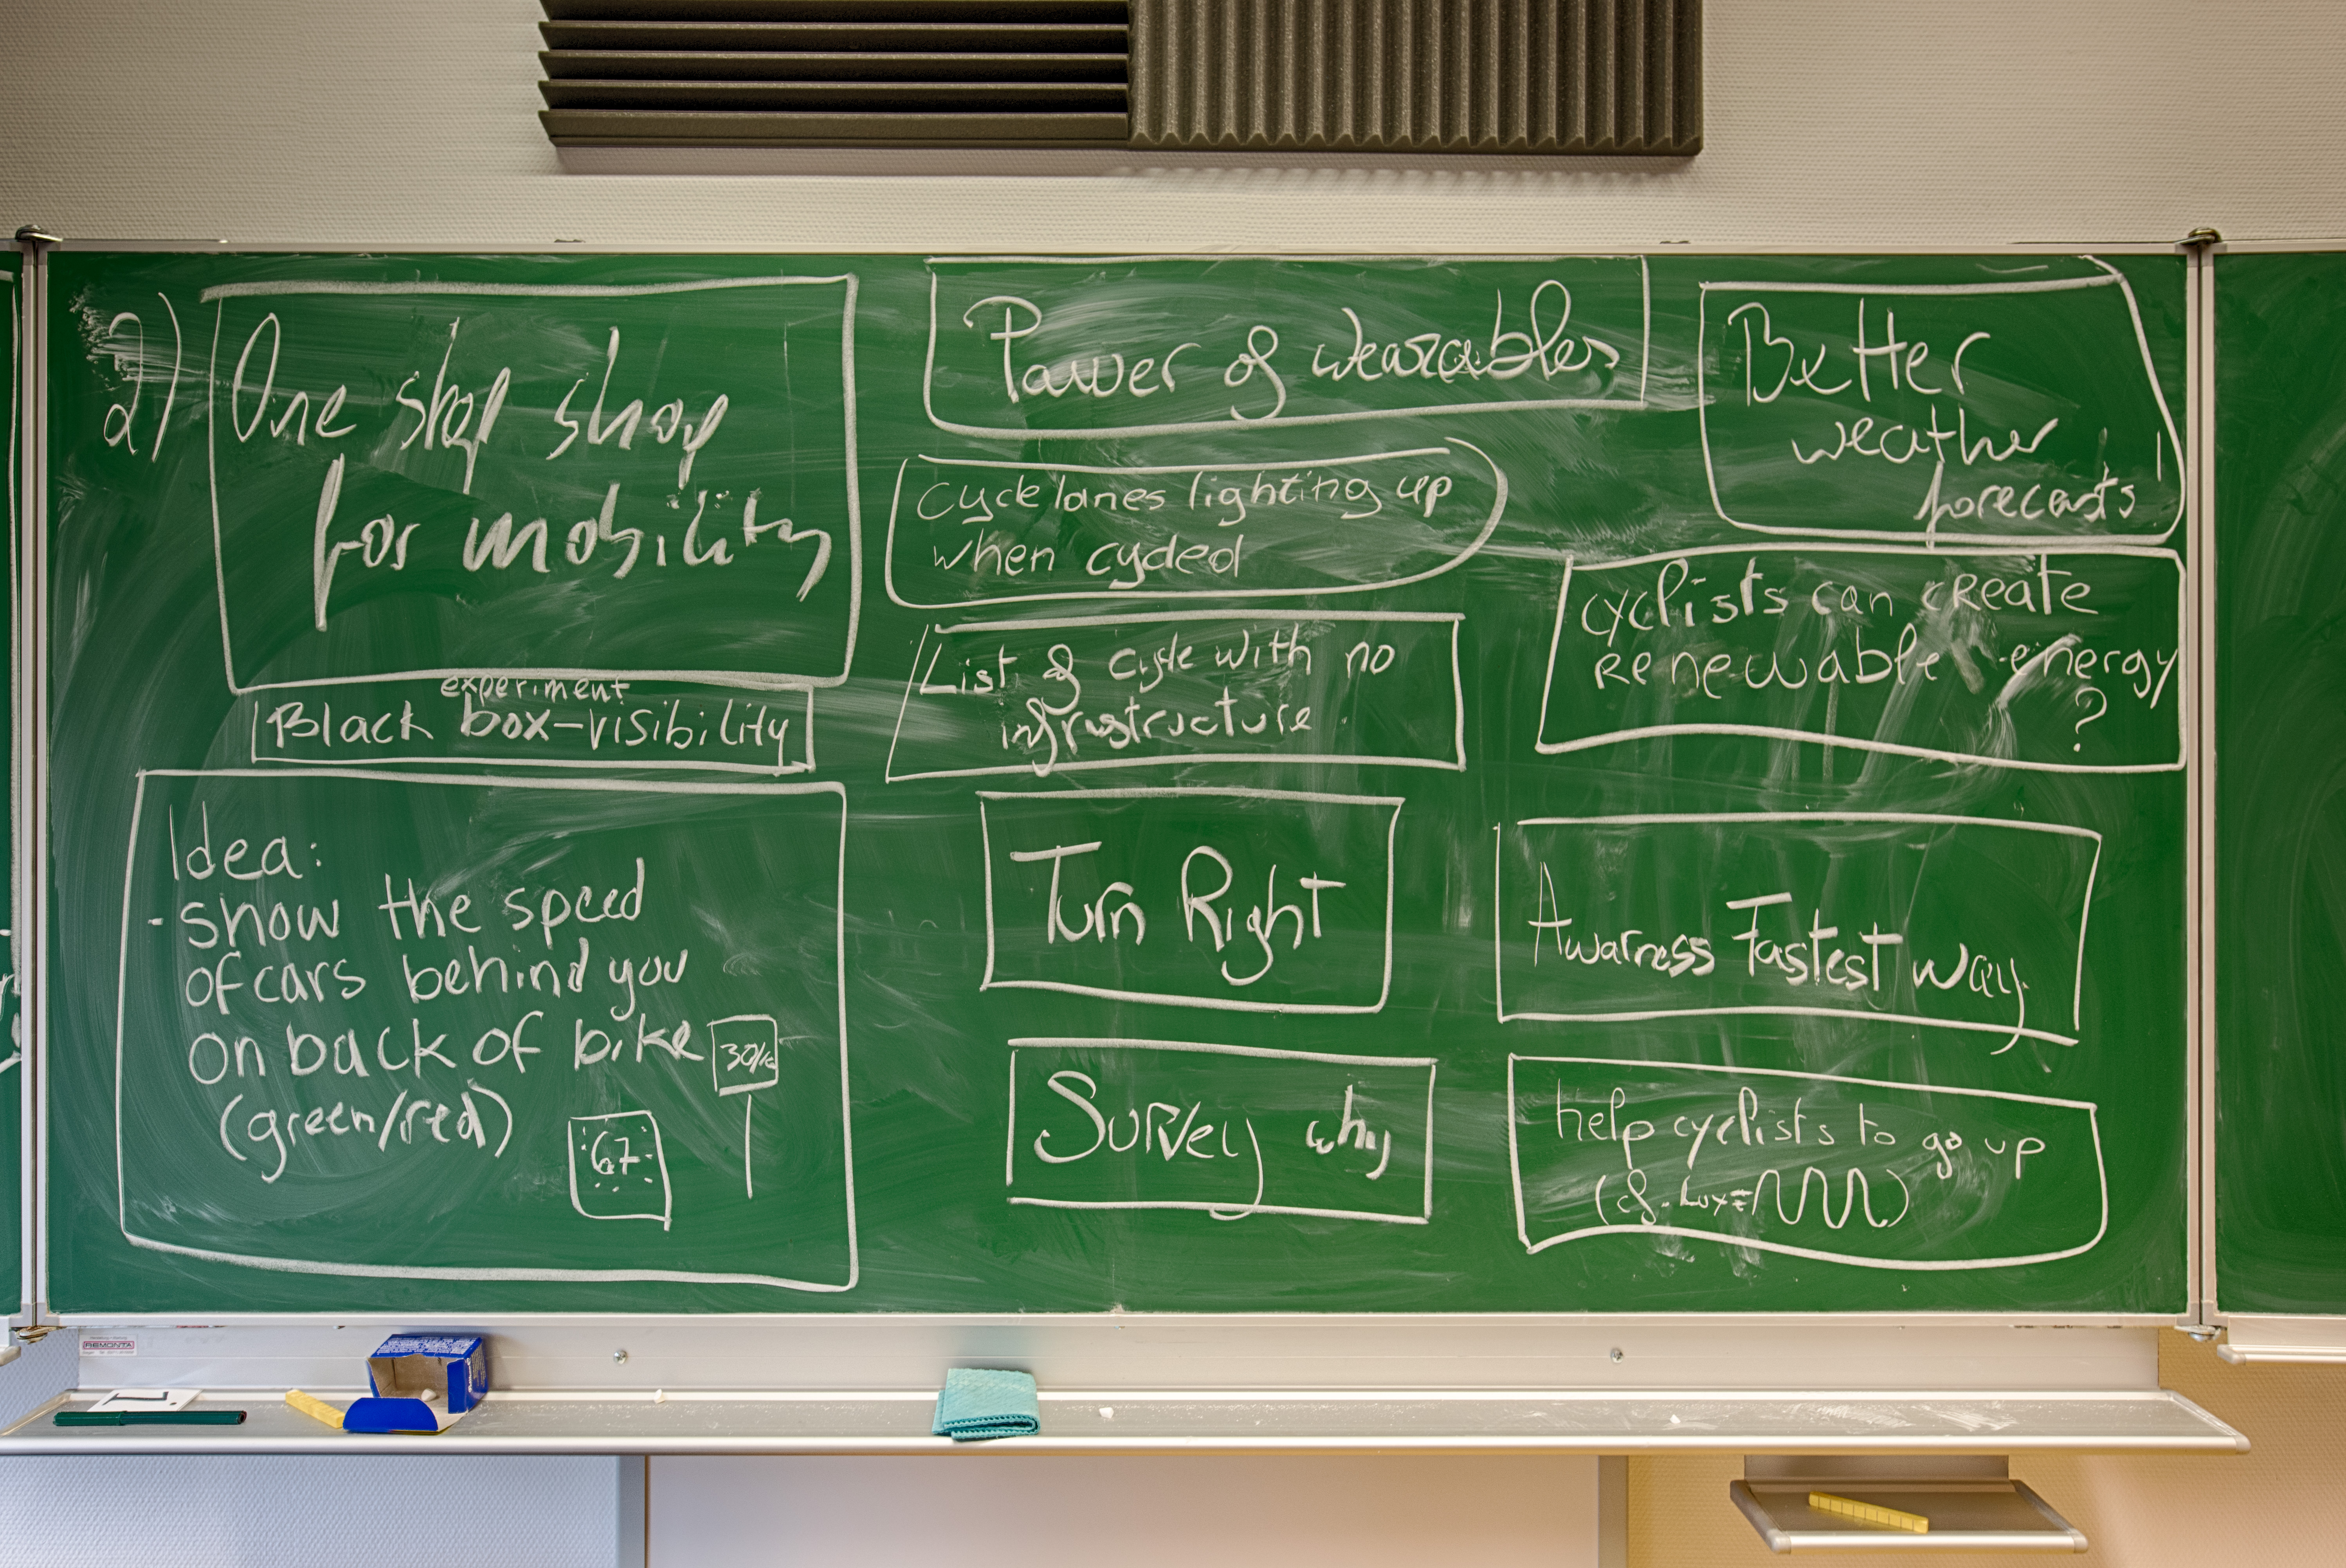 2)
One stop shop
for mobility
experiment
Black box-visibility
Idea:
- show the speed
of cars behind you
on back of bike
30/k
(green/red)
67
Power of wearables
Cycle lanes lighting up
when cycled
List of cycle with no
infrastructure
Turn Right
Survey why
Better
weather
forecasts!
cyclists can create
renewable energy
?
Awarness Fastest way
help cyclists to go up
(cf. Lux=
REMONTA